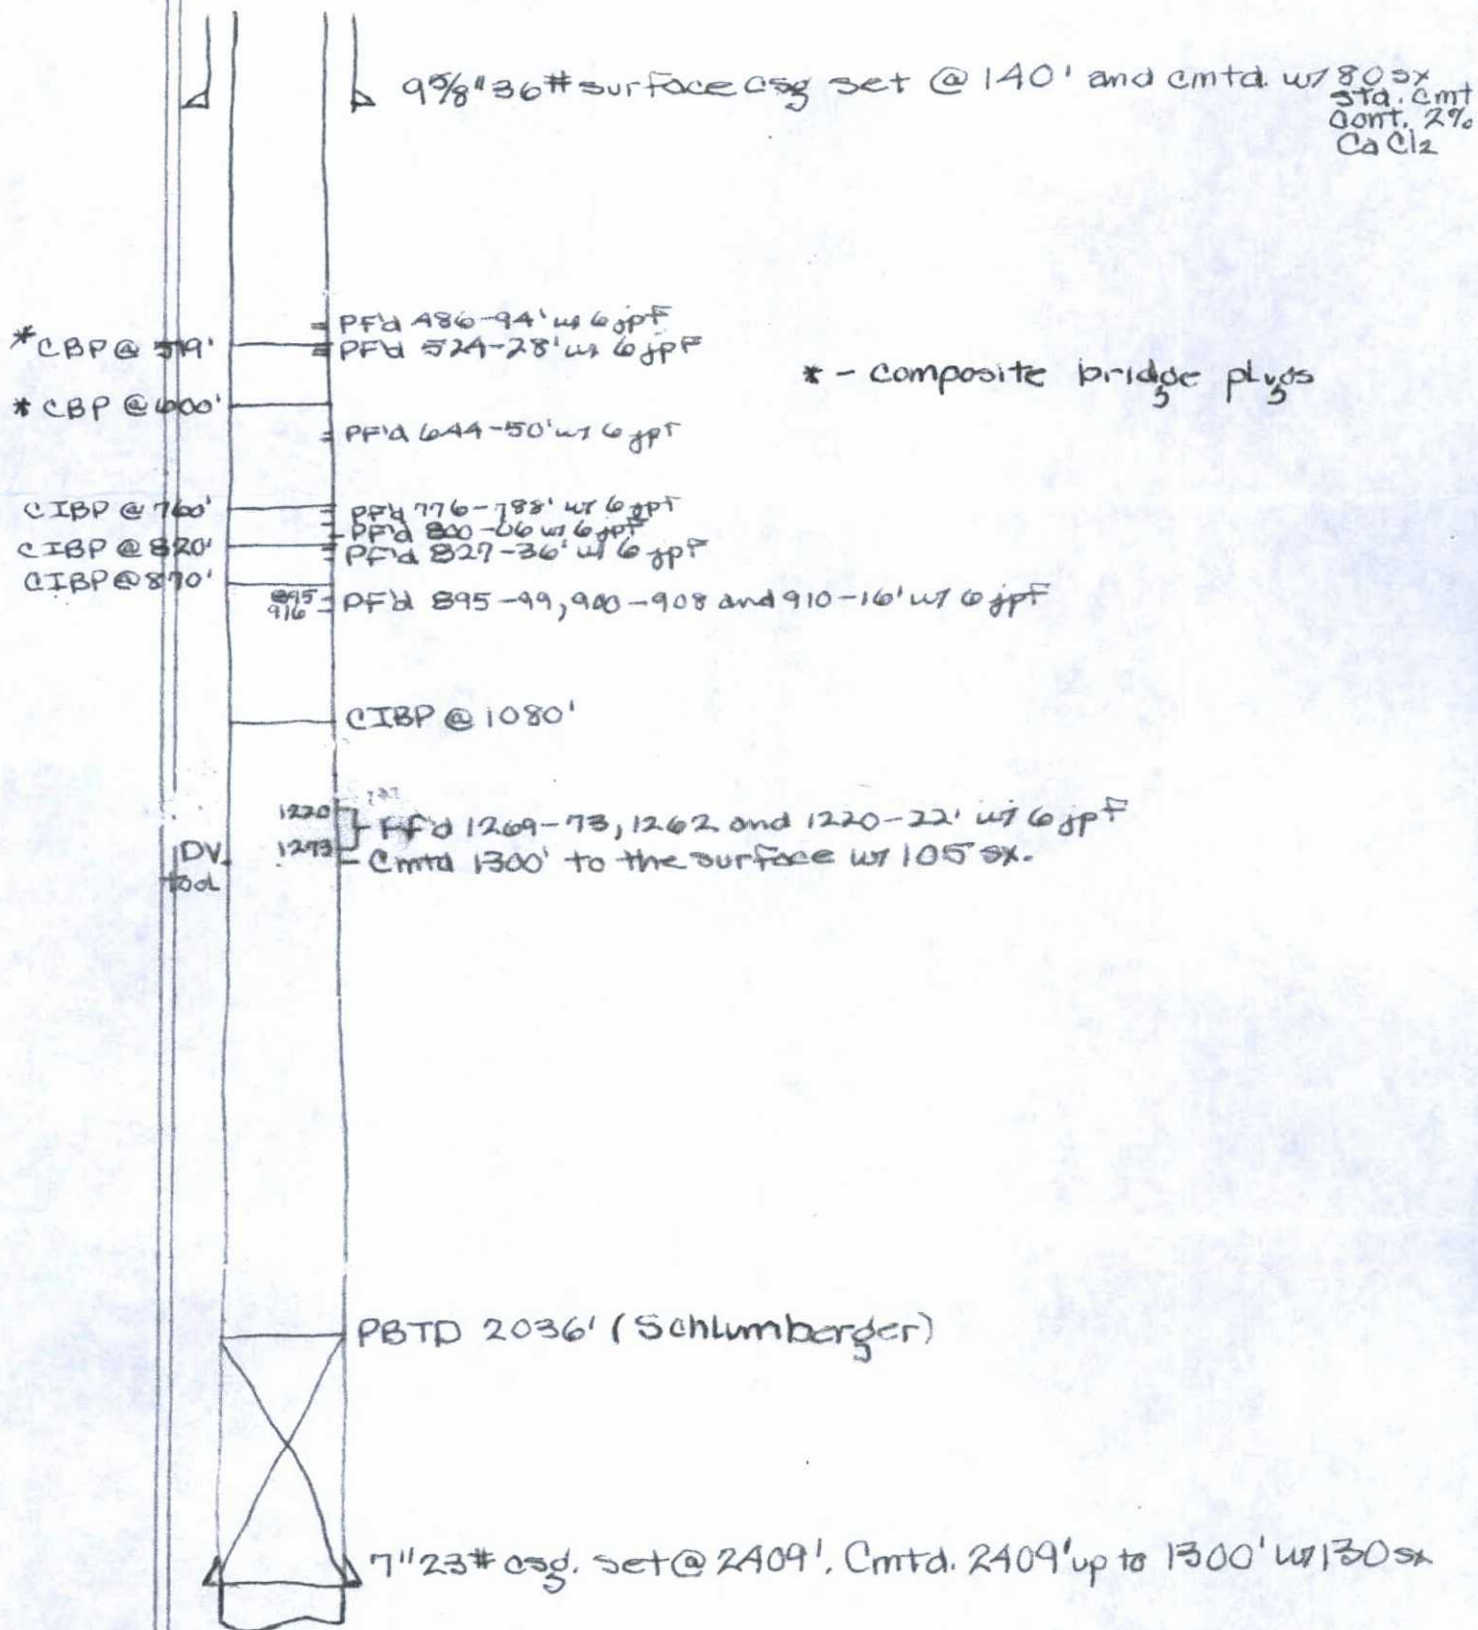 9 5/8" 36# surface csg set @ 140' and cmtd. w/ 80 sx
std. cmt
cont. 2%
CaCl2
PF'd 486-94' w/ 6 jpf
* CBP @ 519'
PF'd 524-28' w/ 6 jpf
* - composite bridge plugs
* CBP @ 600'
PF'd 644-50' w/ 6 jpf
CIBP @ 760'
PF'd 776-788' w/ 6 jpf
PF'd 800-06 w/ 6 jpf
CIBP @ 820'
PF'd 827-36' w/ 6 jpf
CIBP @ 870'
895
916
PF'd 895-99, 900-908 and 910-16' w/ 6 jpf
CIBP @ 1080'
1220
1273
PF'd 1269-73, 1262 and 1220-22' w/ 6 jpf
DV
tool
Cmtd 1300' to the surface w/ 105 sx.
PBTD 2036' (Schlumberger)
7" 23# csg. set @ 2409'. Cmtd. 2409' up to 1300' w/ 130 sx